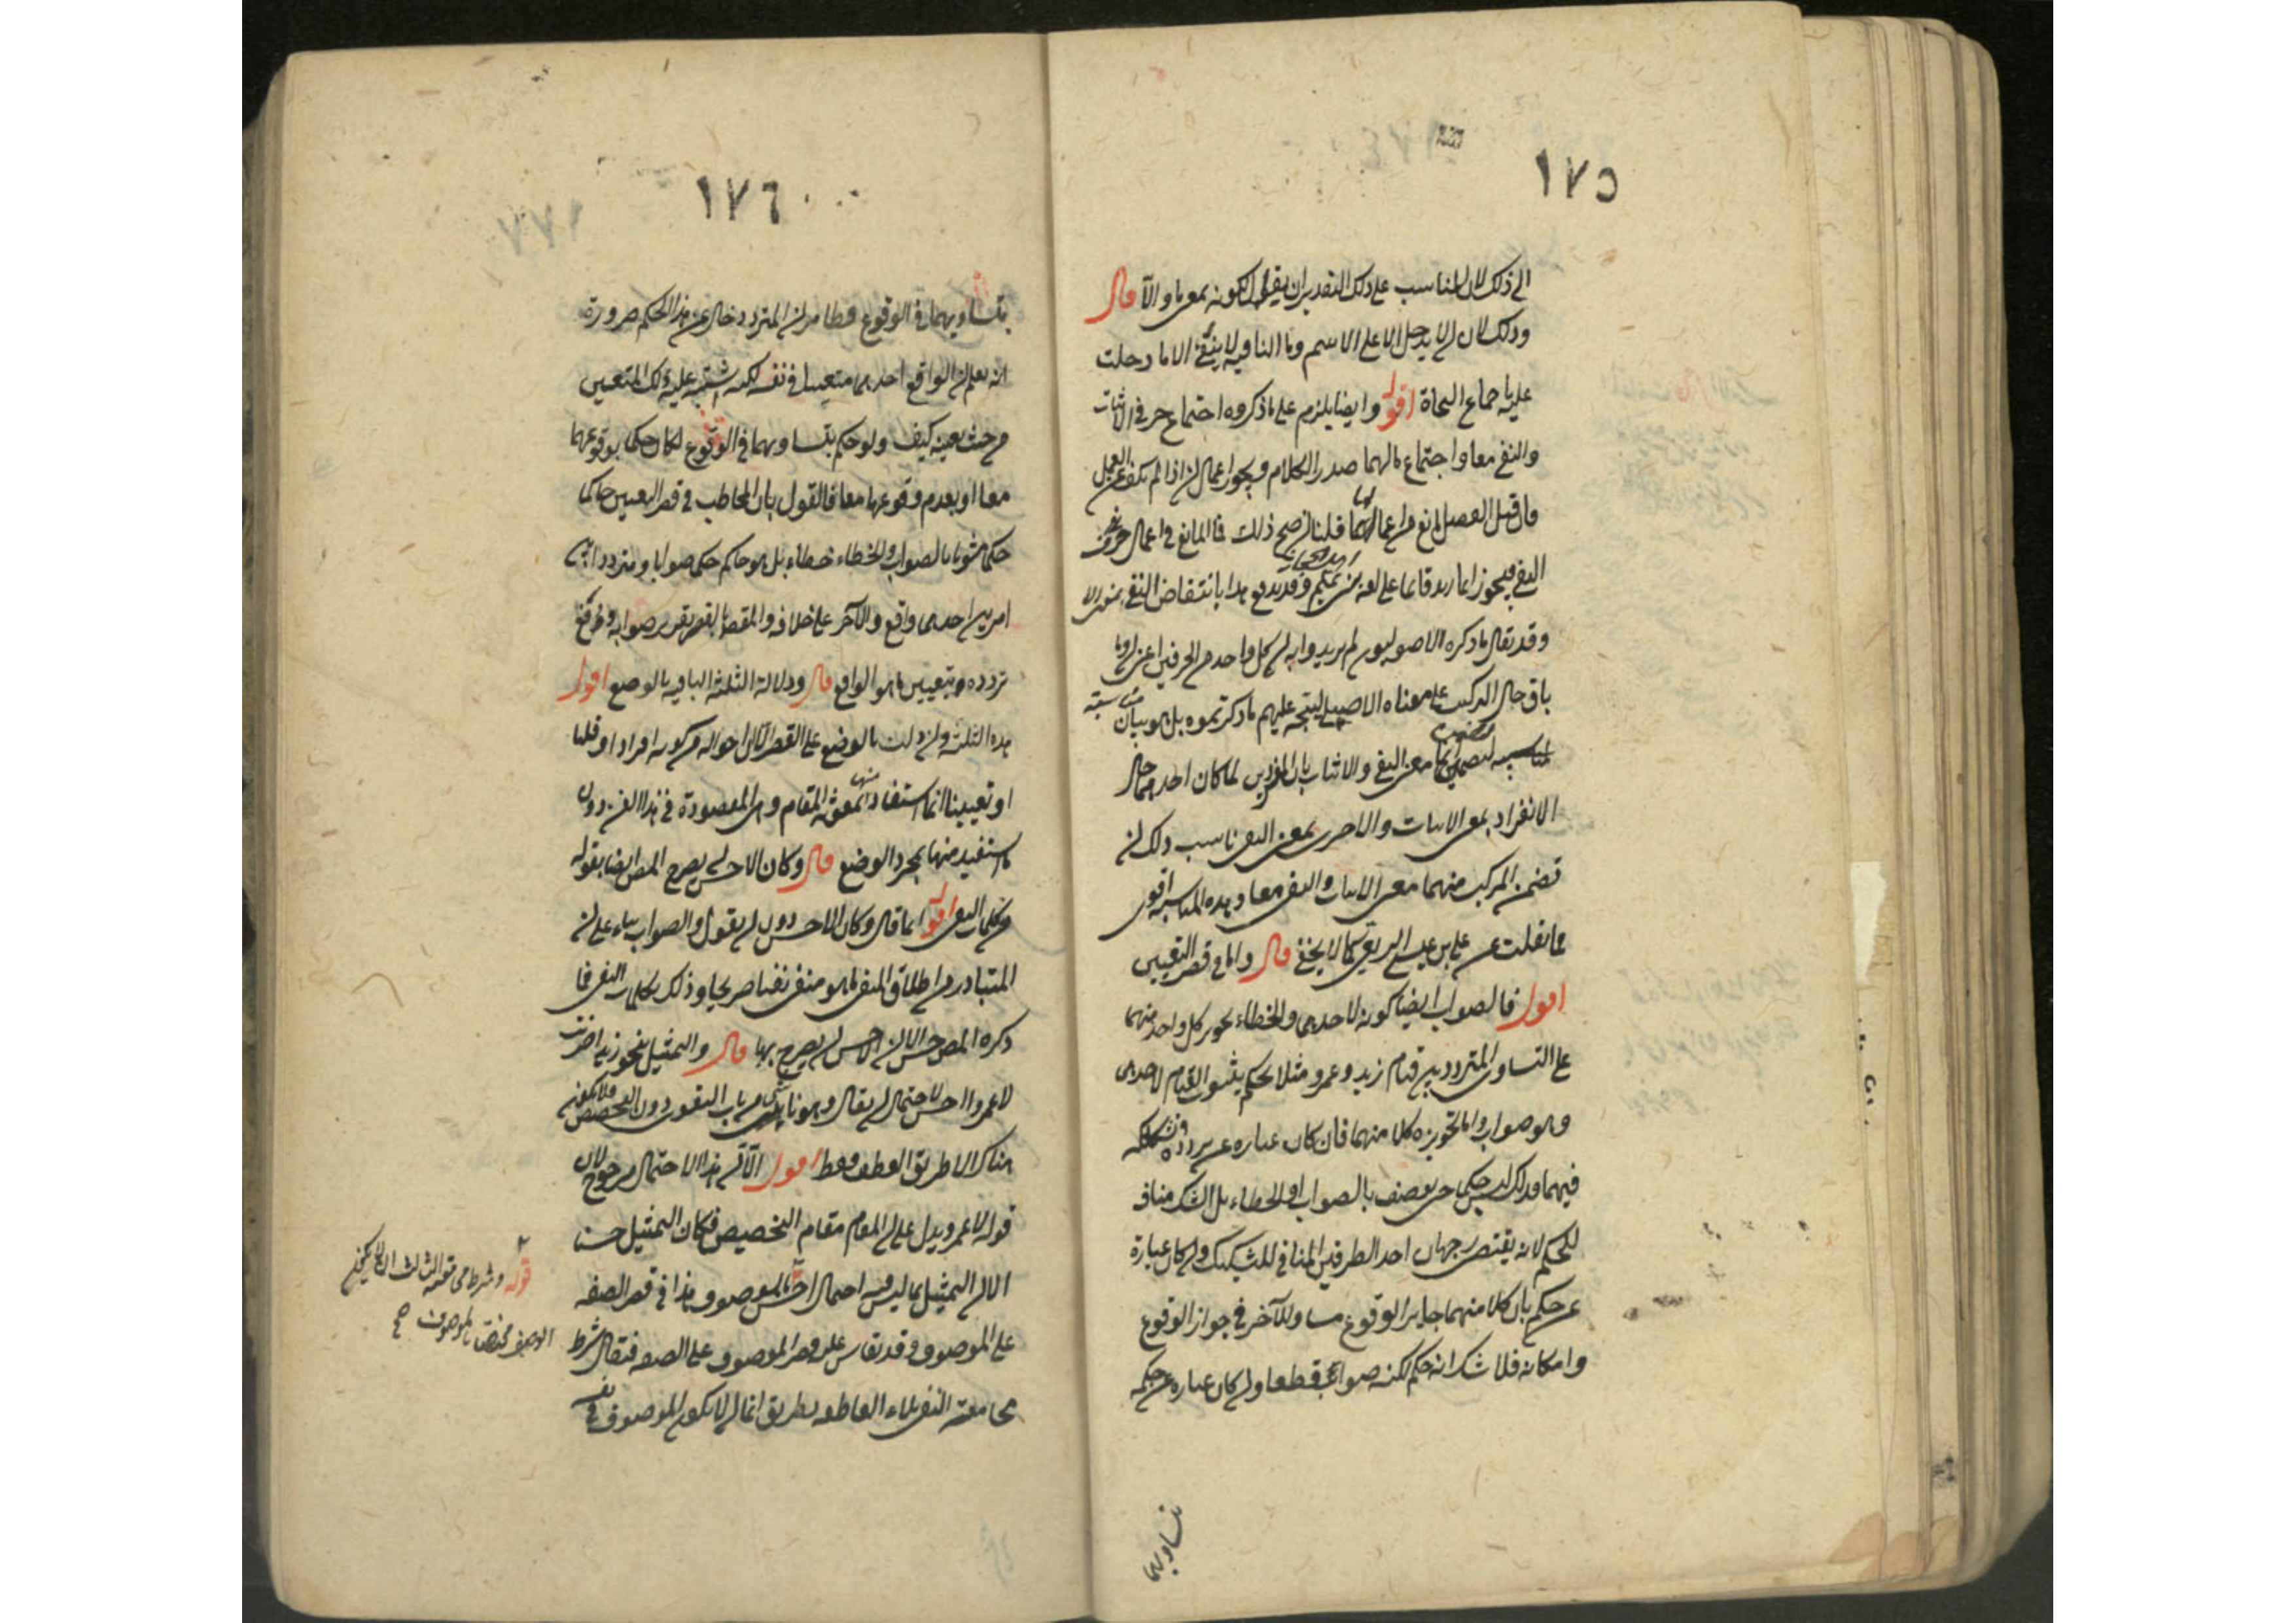 ١٧٥
الى ذلك لان المناسب على ذلك التقدير ان يقال لكونه بمعنى ما والا قال
وذلك لان ان لا يدخل الا على الاسم وما النافية لا ينفى الا ما دخلت
عليه باجماع النحاة اقول وايضا يلزم على ما ذكروه اجتماع حرفى الاثبات
والنفى معا واجتماع مالهما صدر الكلام ويجوز اعمال ان اذا لم تكف عن العمل
فان قيل الفصل مانع من اعمالها قلنا ان صح ذلك فما المانع فى اعمال حرف
النفى فيجوز انما زيد قائما على لغة وقد يدفع هذا بانتقاض النفى
وقد يقال ما ذكره الاصوليون لم يريدوا به ان كل واحد من الحرفين اعنى ان وما
باق حال التركيب على معناه الاصلى ليتجه عليهم ما ذكرتموه بل هو بيان مناسبة
لتضمين انما معنى النفى والاثبات بان المفردين لما كان احدهما حال
الانفراد بمعنى الاثبات والاخرى بمعنى النفى ناسب ذلك ان
تضمن المركب منهما معنى الاثبات والنفى معا وهذه المناسبة اقوى
مما نقلت عن على بن عيسى الربعى كما لا يخفى قال واما فى قصر التعيين
اقول فالصواب ايضا كونه لاحدهما والخطاء تجويز كل واحد منهما
على التساوى المتردد بين قيام زيد وعمرو مثلا يحكم بثبوت القيام لاحدهما
وهو صواب واما تجويزه كلا منهما فان كان عبارة عن تردده وتشككه
فيهما فذلك ليس حكما حتى يوصف بالصواب او الخطاء بل الشك مناف
للحكم لانه يقتضى رجحان احد الطرفين المنافى للتشكيك وان كان عبارة
عن حكم بان كلا منهما جايز الوقوع مساو للآخر فى جواز الوقوع
وامكانه فلا شك انه حكم لكنه صواب قطعا وان كان عبارة عن حكمه
تساويهما
١٧٦
بتساويهما فى الوقوع فظاهر ان المتردد خال عن هذا الحكم ضرورة
انه يعلم ان الواقع احدهما متعينا فى نفسه لكنه اشتبه عليه ذلك المتعين
من حيث تعينه كيف ولو حكم بتساويهما فى الوقوع لكان حكما بوقوعهما
معا او بعدم وقوعهما معا فالقول بان المخاطب فى قصر التعيين حاكما
حكما مشوبا بالصواب والخطاء خطاء بل هو حاكم حكما صوابا ومتردد بين
امرين احدهما واقع والآخر على خلافه والمقصود بالقصر تقرير صوابه ورفع
تردده وتعيين ما هو الواقع قال ودلالة الثلثة الباقية بالوضع اقول
هذه الثلثة وان دلت بالوضع على القصر الا ان احواله من كونه افرادا او قلبا
او تعيينا انما يستفاد منها بمعونة المقام وهى المقصودة فى هذا الفن دون
ما استفيد منها بمجرد الوضع قال وكان الاحسن ان يصرح المص ايضا بقوله
من كلمات النفى اقول انما قال وكان الاحسن دون ان يقول والصواب بناء على ان
المتبادر من اطلاق المنفى ما هو منفى نفيا صريحا وذلك بكلمات النفى فما
ذكره المص حسن الا ان الاحسن ان يصرح بها قال والتمثيل بنحو زيدا ضربت
لا عمروا احسن لاحتمال ان يقال وهو ما ياتينى من باب التقوى دون التخصيص فلا يكون
هناك الا طريق العطف فقط اقول الا ان هذا الاحتمال مرجوح لان
قوله لا عمرو يدل على ان المقام مقام التخصيص فكان التمثيل حسنا
الا ان التمثيل بما ليس فيه احتمال احسن بالموصوف هذا فى قصر الصفة
على الموصوف وقد يقاس عليه قصر الموصوف على الصفة فيقال شرط
مجامعة النفى بلاء العاطفة بطريق انما ان لا يكون الموصوف فى نفسه
قوله وشرط مجامعته الثالث ان لا يكون
الوصف مختصا بالموصوف صح